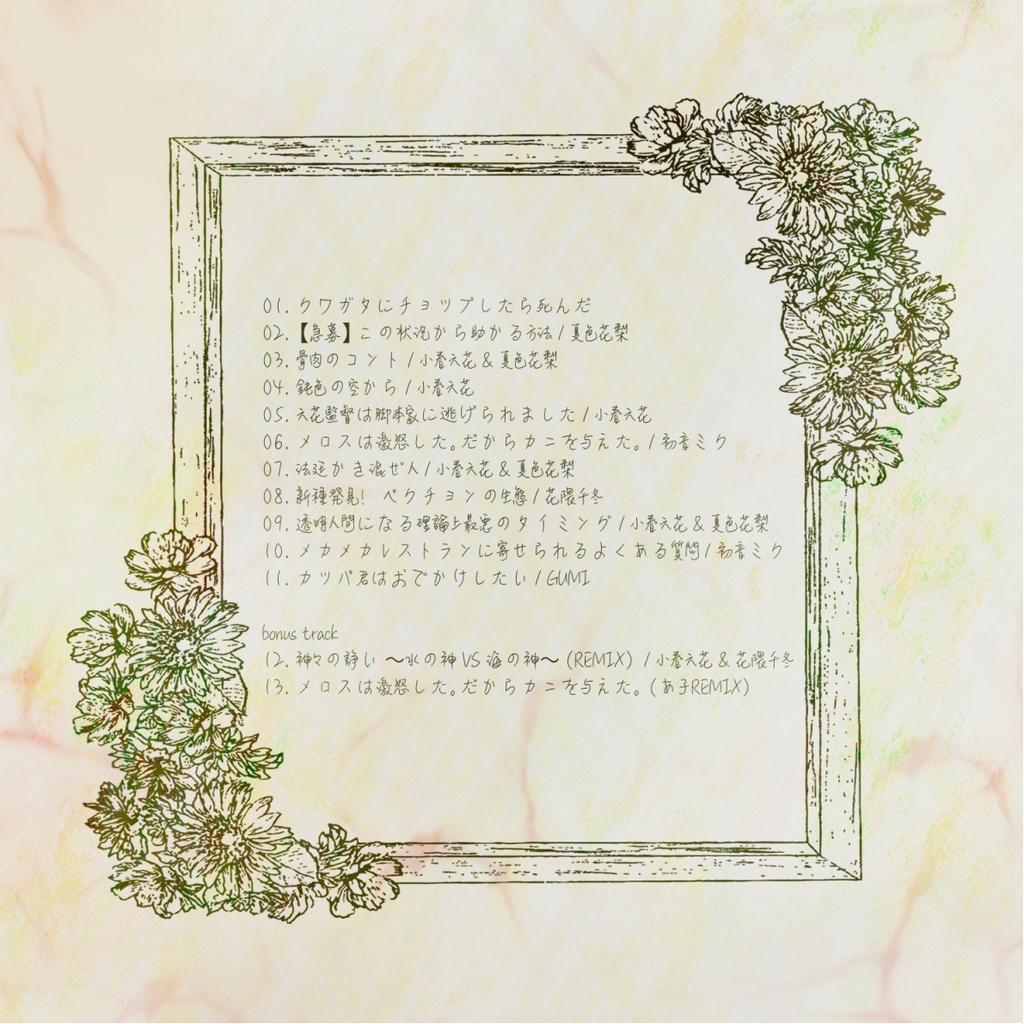 01. クワガタにチョップしたら死んだ
02.【急募】この状況から助かる方法 / 夏色花梨
03. 骨肉のコント / 小春六花 & 夏色花梨
04. 鈍色の空から / 小春六花
05. 六花監督は脚本家に逃げられました / 小春六花
06. メロスは激怒した。だからカニを与えた。/ 初音ミク
07. 法廷かき混ぜ人 / 小春六花 & 夏色花梨
08. 新種発見! ペクチョンの生態 / 花隈千冬
09. 透明人間になる理論上最悪のタイミング / 小春六花 & 夏色花梨
10. メカメカレストランに寄せられるよくある質問 / 初音ミク
11. カッパ君はおでかけしたい / GUMI
bonus track
12. 神々の諍い 〜水の神 VS 海の神〜 (REMIX) / 小春六花 & 花隈千冬
13. メロスは激怒した。だからカニを与えた。(あ子REMIX)